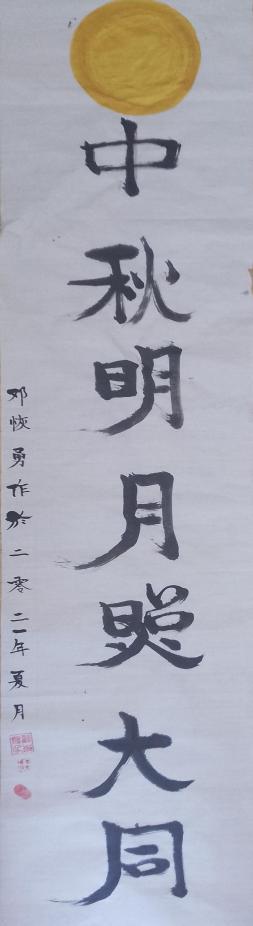 中秋明月照大同
邓恢勇作於二零二一年夏月